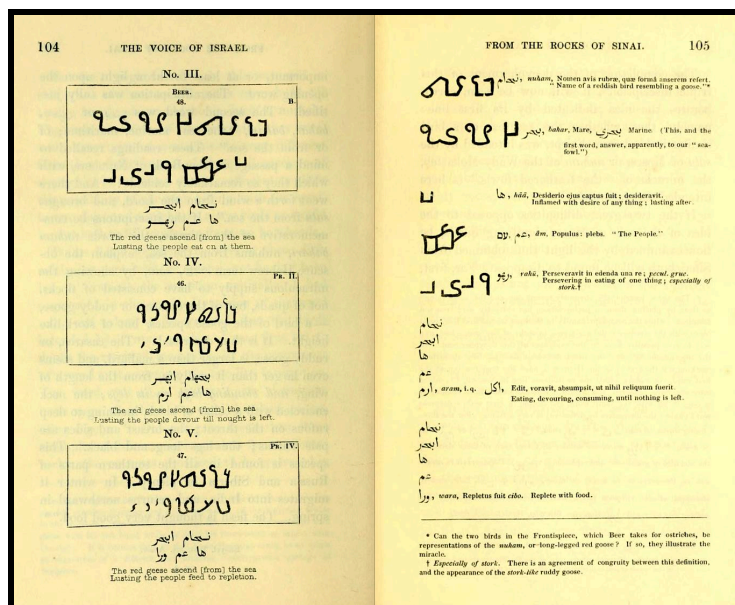 104 THE VOICE OF ISRAEL
No. III.
BEER.
48. B.
نحام ابحر
ها عم رهو
The red geese ascend [from] the sea
Lusting the people eat on at them.
No. IV.
46. PR. II.
ابحر
ها عم ارم
The red geese ascend [from] the sea
Lusting the people devour till nought is left.
No. V.
47. PR. IV.
نحام ابحر
ها عم ورا
The red geese ascend [from] the sea
Lusting the people feed to repletion.
FROM THE ROCKS OF SINAI. 105
نحام, nuham, Nomen avis rubræ, quæ formâ anserem refert.
"Name of a reddish bird resembling a goose."*
بحر, bahar, Mare, بحري Marine. (This, and the
first word, answer, apparently, to our "sea-
fowl.")
ها, hāā, Desiderio ejus captus fuit; desideravit.
Inflamed with desire of any thing; lusting after.
עם, عم, âm, Populus: plebs. "The People."
رهو, rahū, Perseveravit in edenda una re; pecul. grue.
Persevering in eating of one thing; especially of
stork.†
نحام
ابحر
ها
عم
ارم, aram, i.q. اكل, Edit, voravit, absumpsit, ut nihil reliquum fuerit.
Eating, devouring, consuming, until nothing is left.
نحام
ابحر
ها
عم
ورا, wara, Repletus fuit cibo. Replete with food.
* Can the two birds in the Frontispiece, which Beer takes for ostriches, be
representations of the nuham, or long-legged red goose? If so, they illustrate the
miracle.
† Especially of stork. There is an agreement of congruity between this definition,
and the appearance of the stork-like ruddy goose.